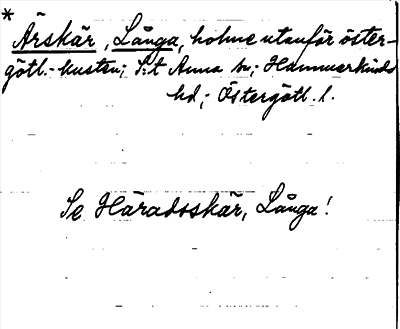 * Årskär, Långa, holme utanför öster-
götl.-kusten; S:t Anna sn; Hammarkinds
hd; Östergötl. l.
Se Häradsskär, Långa!